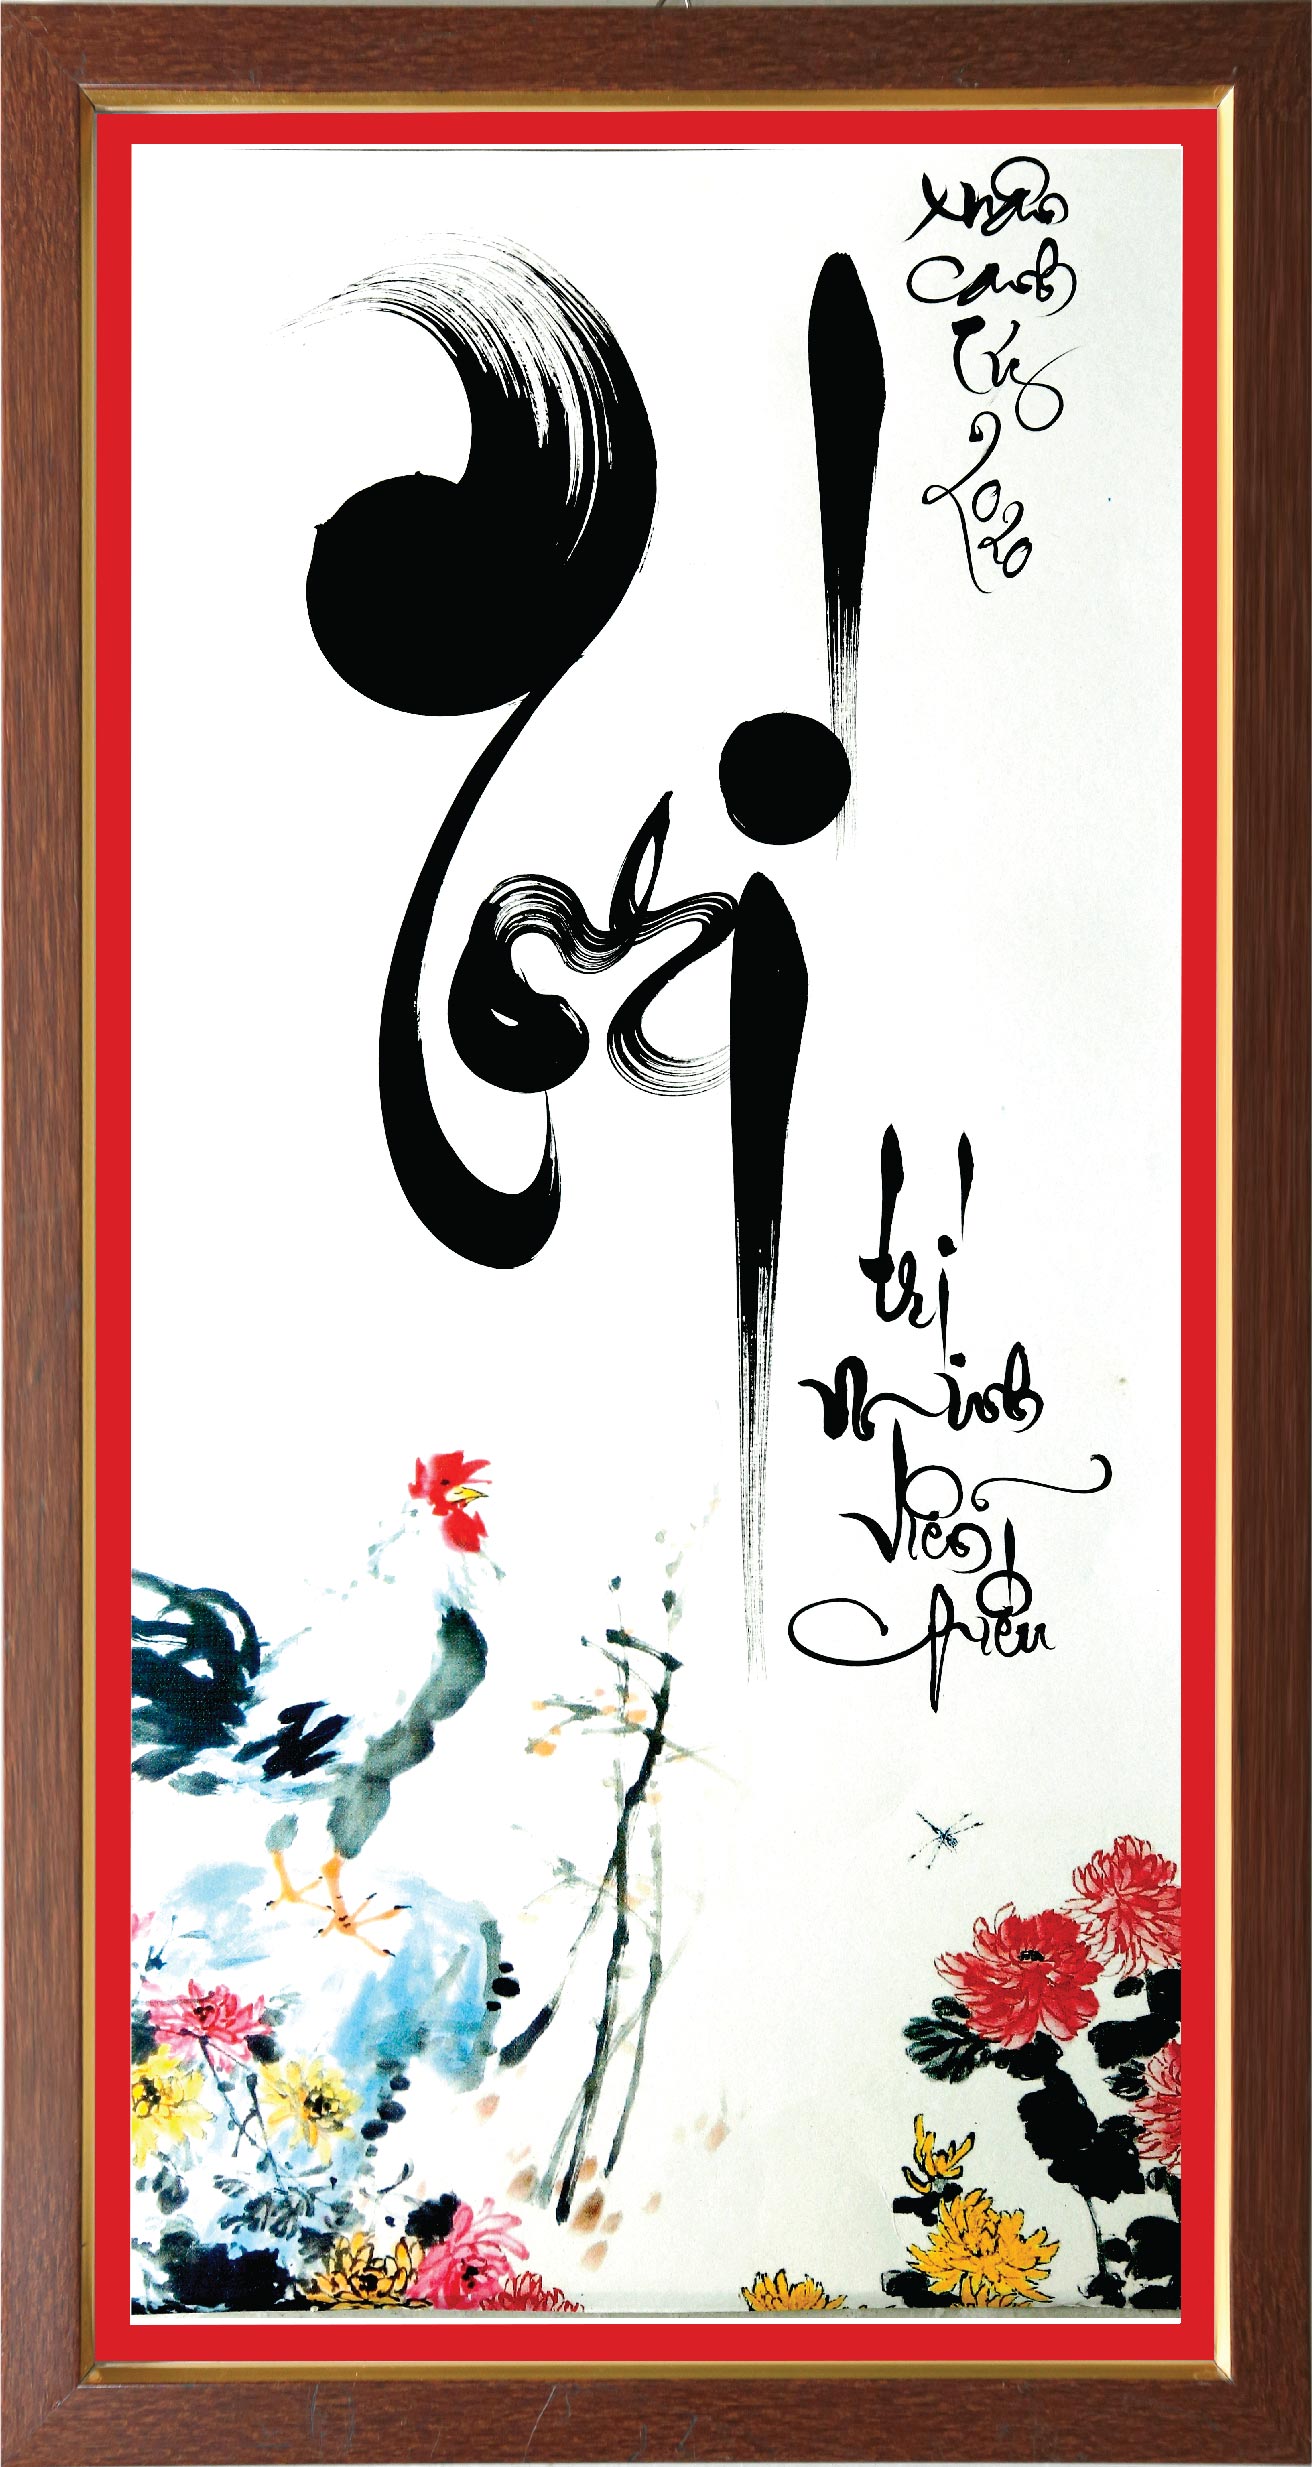 Xuân
Canh
Tý
2020
Trí
trí
Minh
Viên
Chiếu